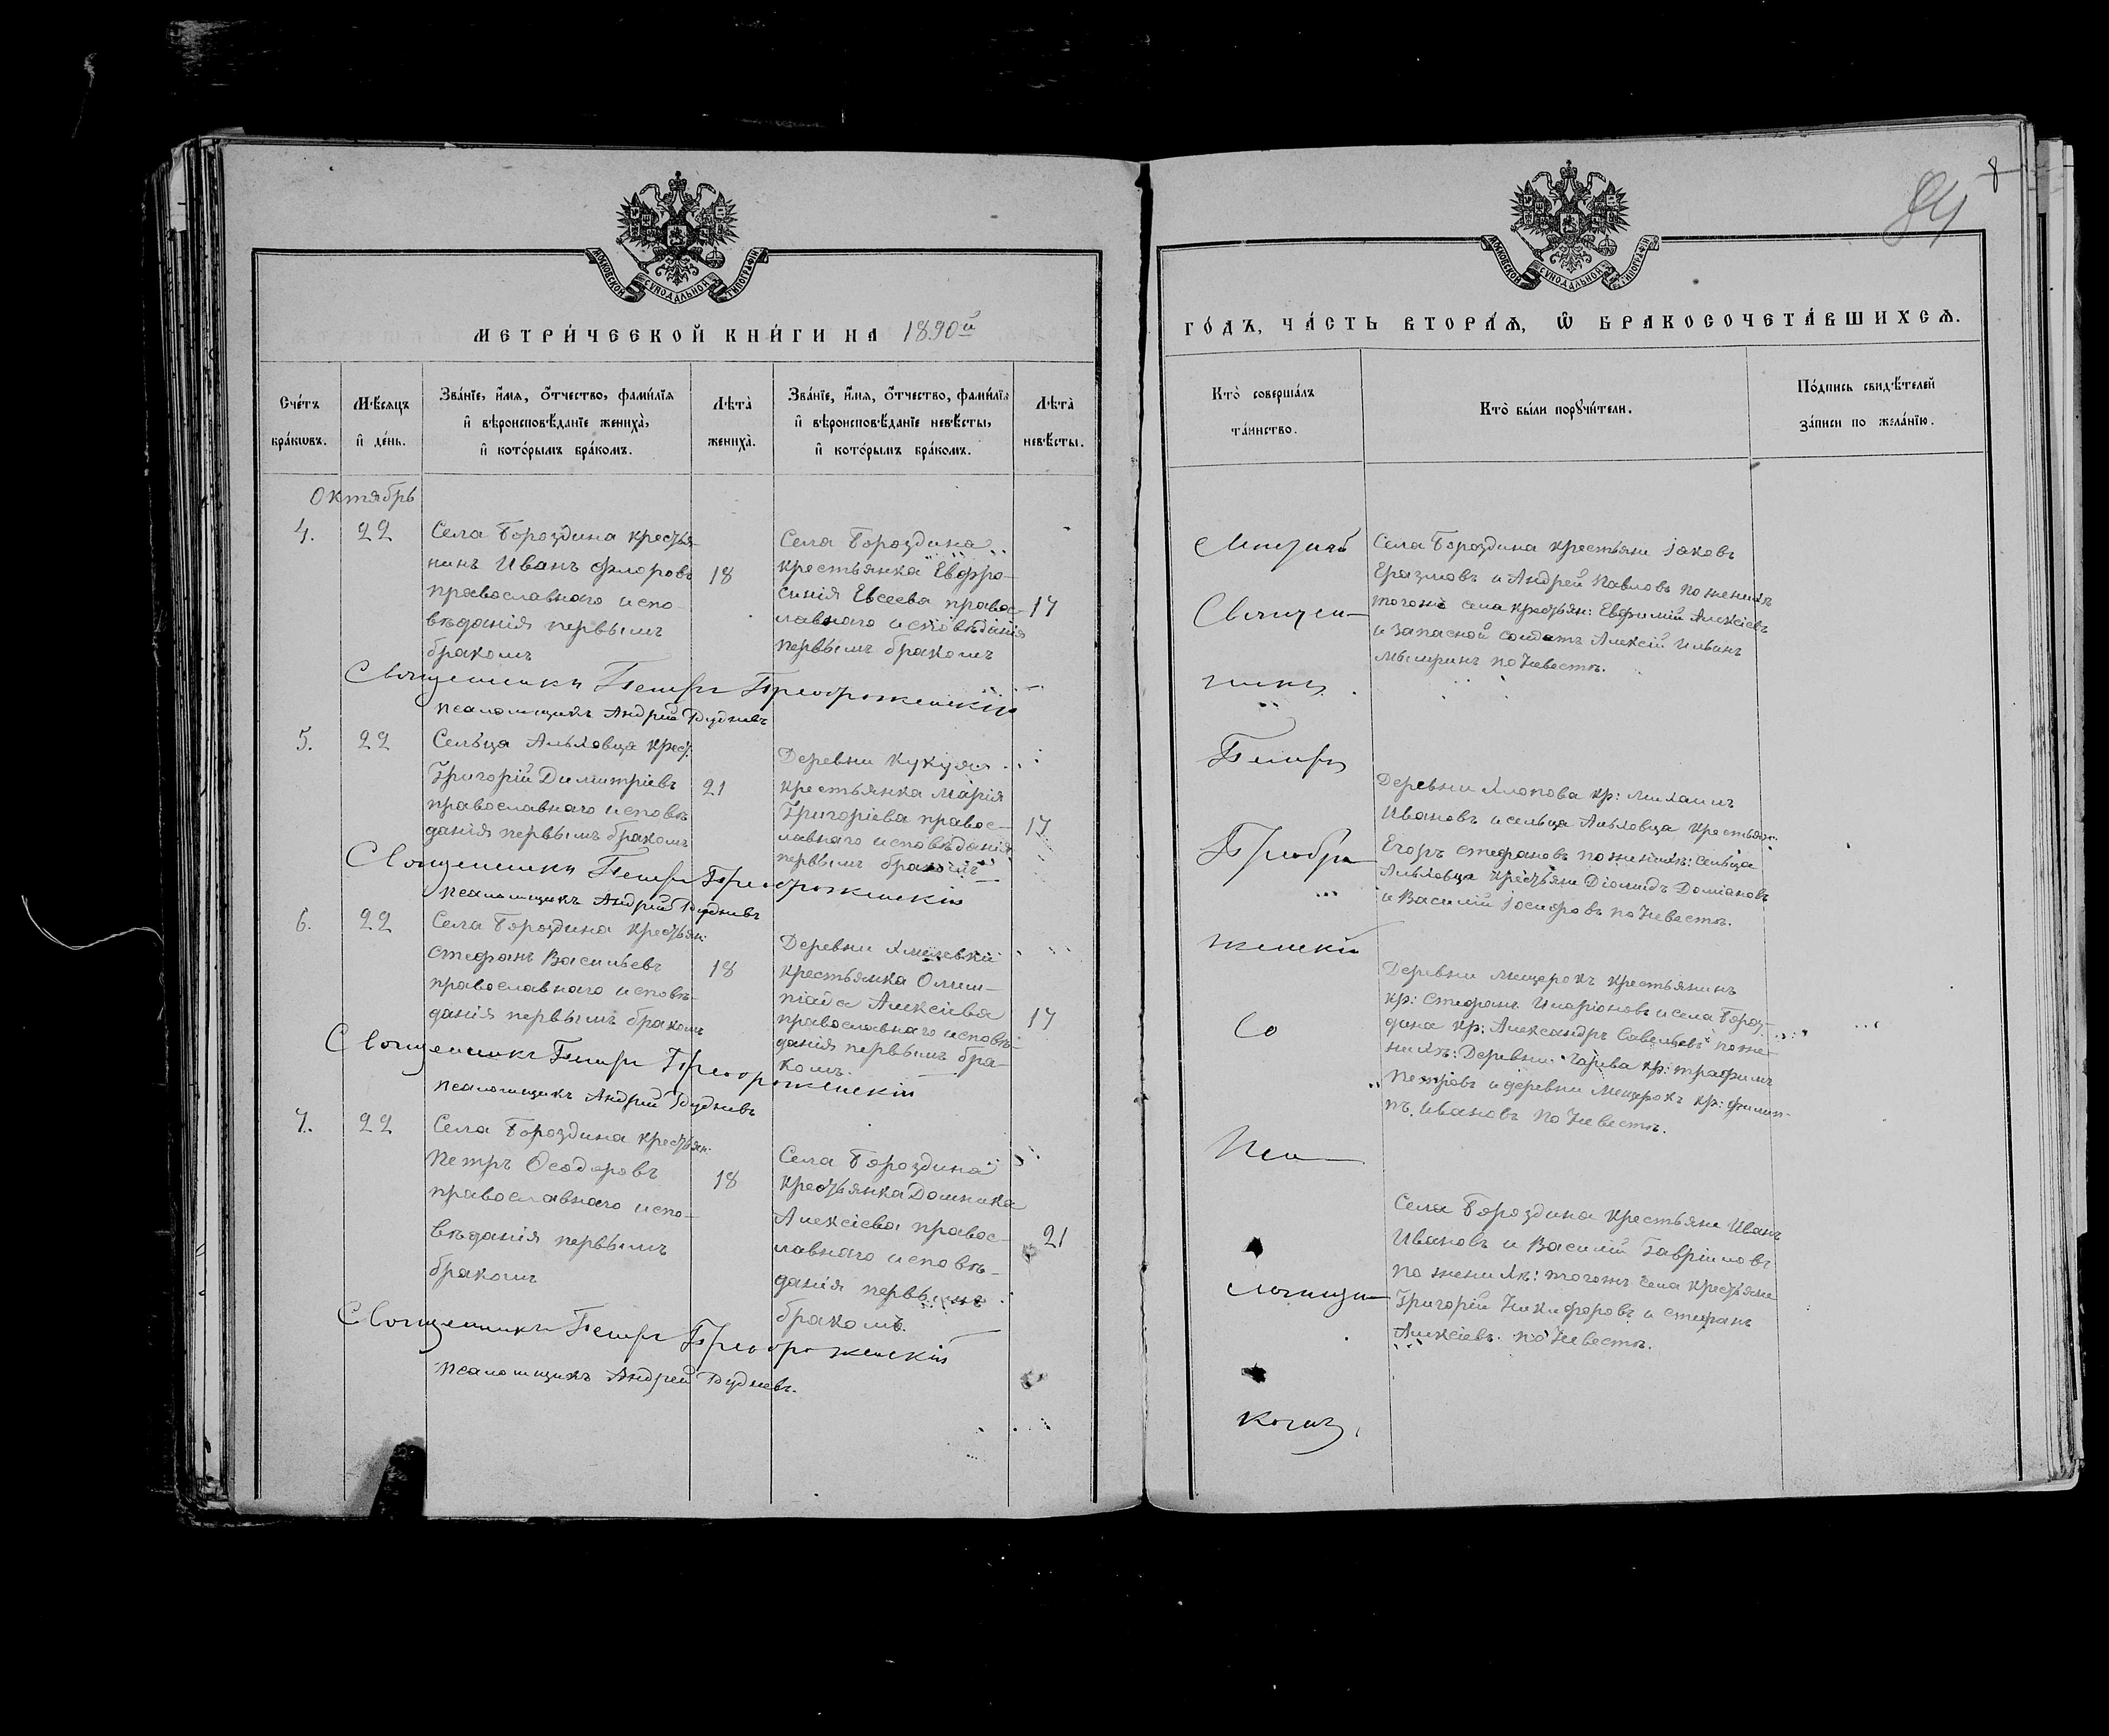 МОСКОВСКОЙ СѴНОДАЛЬНОЙ ТИПОГРАФІИ
МЕТРИ́ЧЕСКОЙ КНИ́ГИ НА 1890й
Сче́тъ бра́кѡвъ.
Мѣ́сяцъ и҆ де́нь.
Зва́нїе, и҆́мя, ѻ҆́тчество, фами́лїя
и҆ вѣроисповѣ́данїе жениха̀,
и҆ кото́рымъ бра́комъ.
Лѣ́та̀ жениха̀.
Зва́нїе, и҆́мя, ѻ҆́тчество, фами́лїя
и҆ вѣроисповѣ́данїе невѣ́сты,
и҆ кото́рымъ бра́комъ.
Лѣ́та̀ невѣ́сты.
Октябрь
4.
22
Села Бороздина крестья-
нинъ Иванъ Флоровъ
православнаго испо-
вѣданія первымъ
бракомъ
18
Села Бороздина
крестьянка Евфро-
синія Евсеева правос-
лавнаго исповѣданія
первымъ бракомъ
17
Священникъ Петръ Преображенскій
псаломщикъ Андрей Рудневъ
5.
22
Сельца Альховца крест.
Григорій Димитріевъ
православнаго исповѣ
данія первымъ бракомъ
21
Деревни Кукуя
крестьянка Марія
Григоріева правос-
лавнаго исповѣданія
первымъ бракомъ
17
Священникъ Петръ Преображенскій
псаломщикъ Андрей Рудневъ
6.
22
Села Бороздина крестьян:
Стефанъ Васильевъ
православнаго исповѣ-
данія первымъ бракомъ
18
Деревни
крестьянка Олим-
піада Алексіева
православнаго исповѣ-
данія первымъ бра-
комъ.
17
Священникъ Петръ Преображенскій
псаломщикъ Андрей Рудневъ
7.
22
Села Бороздина крестьян:
Петръ Ѳеодоровъ
православнаго испо-
вѣданія первымъ
бракомъ
18
Села Бороздина
крестьянка Домника
Алексіева правос-
лавнаго исповѣ-
данія первымъ
бракомъ.
21
Священникъ Петръ Преображенскій
псаломщикъ Андрей Рудневъ.
8
84
МОСКОВСКОЙ СѴНОДАЛЬНОЙ ТИПОГРАФІИ
ГО́ДЪ, ЧА́СТЬ ВТОРА́Ѧ, Ѡ҆ БРАКОСОЧЕТА́ВШИХСѦ.
Кто̀ соверша́лъ
та́инство.
Кто̀ бы́ли порꙋчи́тели.
По́дпись свидѣ́телей
за́писи по жела́нїю.
Священ
никъ
Петръ
Преобра
женскій
со
Пса
ломщи
комъ
Села Бороздина крестьяне Іаковъ
Еразмовъ и Андрей Павловъ по женихѣ
тогоже села крестьян: Евфимій Алексіевъ
и запасной солдатъ Алексій Ильинъ
по Невестѣ.
Деревни Хлопова кр: Михаилъ
Ивановъ и сельца Альховца крестьян:
Егоръ Стефановъ по женихѣ: сельца
Альховца крестьяне Діомидъ Доміановъ
и Василій Іосифовъ по Невестѣ.
Деревни Мещерокъ крестьянинъ
кр: Стефанъ Иларіоновъ и села Борoз-
дина кр: Александръ Савельевъ по же-
нихѣ: Деревни кр: Трофимъ
Петровъ и деревни Мещерокъ кр: Филип-
пъ Ивановъ по Невестѣ.
Села Бороздина крестьяне Иванъ
Ивановъ и Василій Гавріиловъ
по женихѣ: тогожъ села крестьяне
Григорій Никифоровъ и Стефанъ
Алексіевъ по Невестѣ.